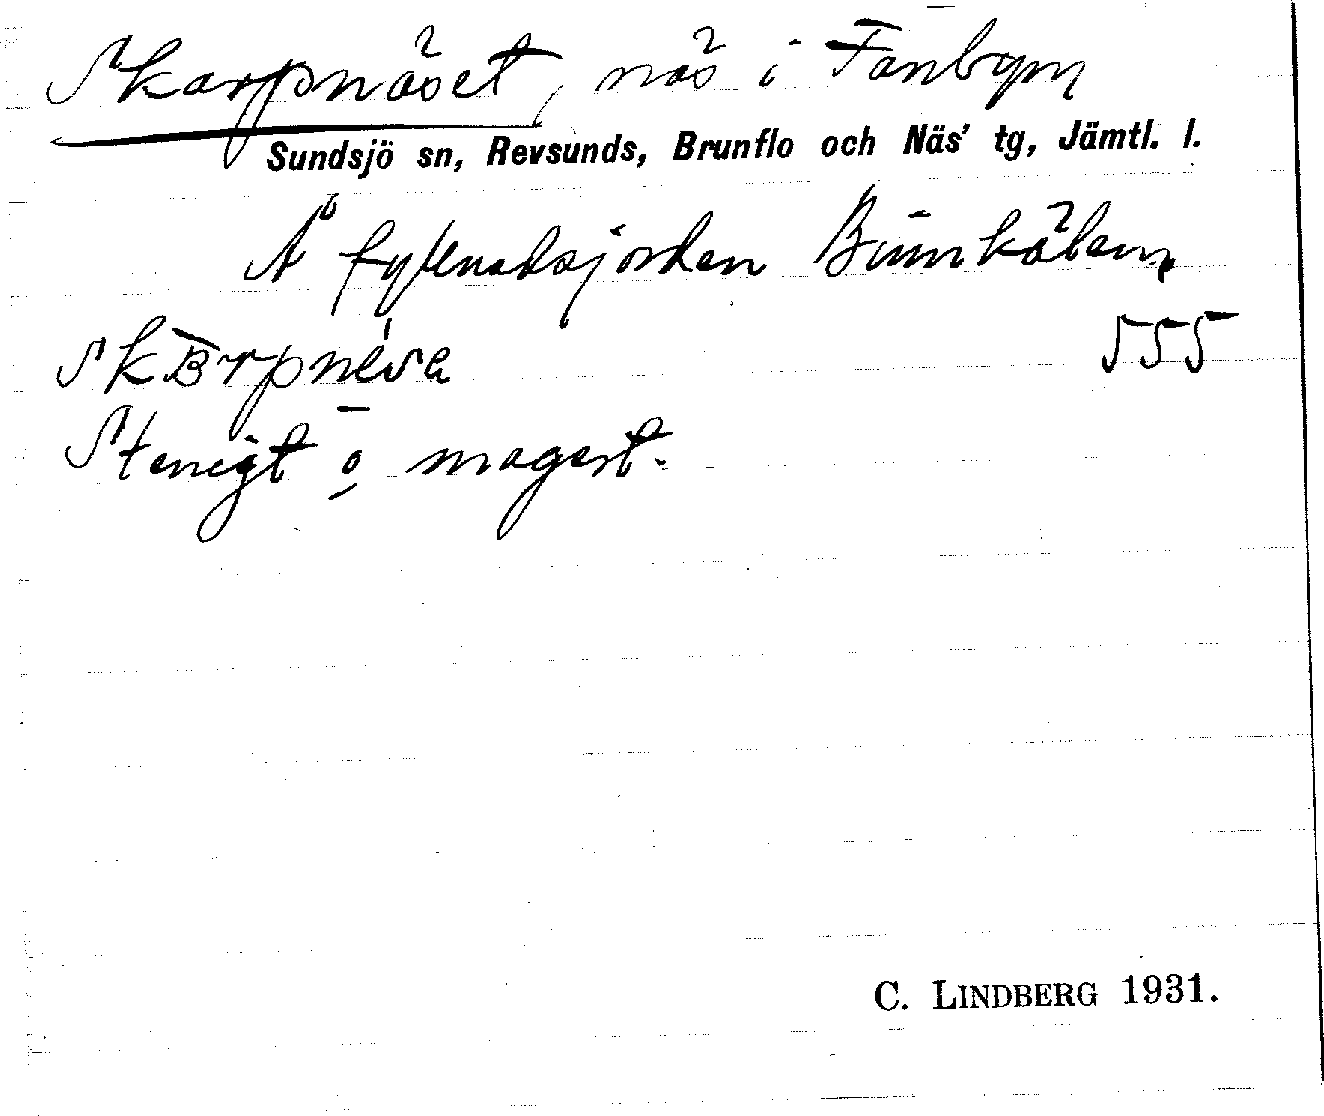 Skarpnäset, näs i Fanbyn
Sundsjö sn, Revsunds, Brunflo och Näs' tg, Jämtl. l.
Å fyllnadsjorden
555
Stenigt o magert.
C. LINDBERG 1931.